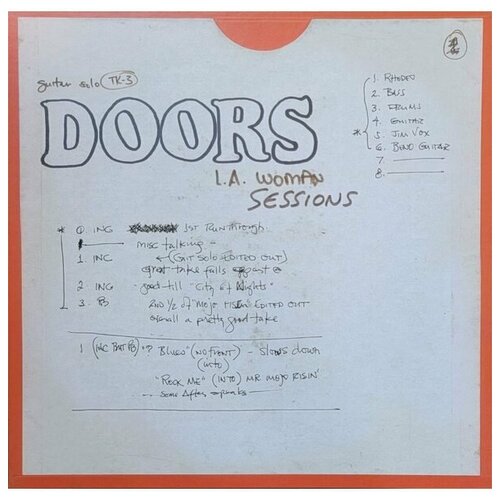 guitar solo TK-3
DOORS
L.A. WOMAN
SESSIONS
1. RHODES
2. BASS
3. DRUMS
4. GUITAR
* 5. JIM VOX
6. BEND GUITAR
7.
8.
* 0. INC 1st Run through.
misc talking
1. INC (GUIT SOLO EDITED OUT)
great take falls apart @
2. INC good till "City of Nights"
3. PB 2ND 1/2 of MOJO RISIN EDITED OUT
overall a pretty good take
1 (INC BUT PB) "? Blues" (NO FRONT) - slows down
(into)
"ROCK ME" (INTO) MR MOJO RISIN'
some After